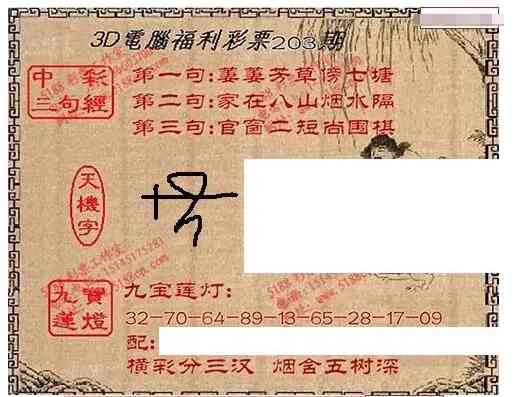 3D電腦福利彩票203期
中彩
三句經
第一句:萋萋芳草傍七塘
第二句:家在八山烟水隔
第三句:官窗二短尚围棋
天機字
九寶
蓮燈
九宝莲灯:
32-70-64-89-13-65-28-17-09
配:
横彩分三汉 烟含五树深